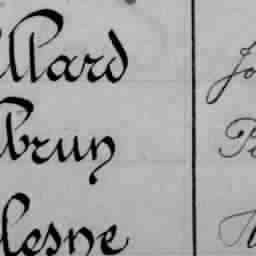 llard Jo
brun P
lesne